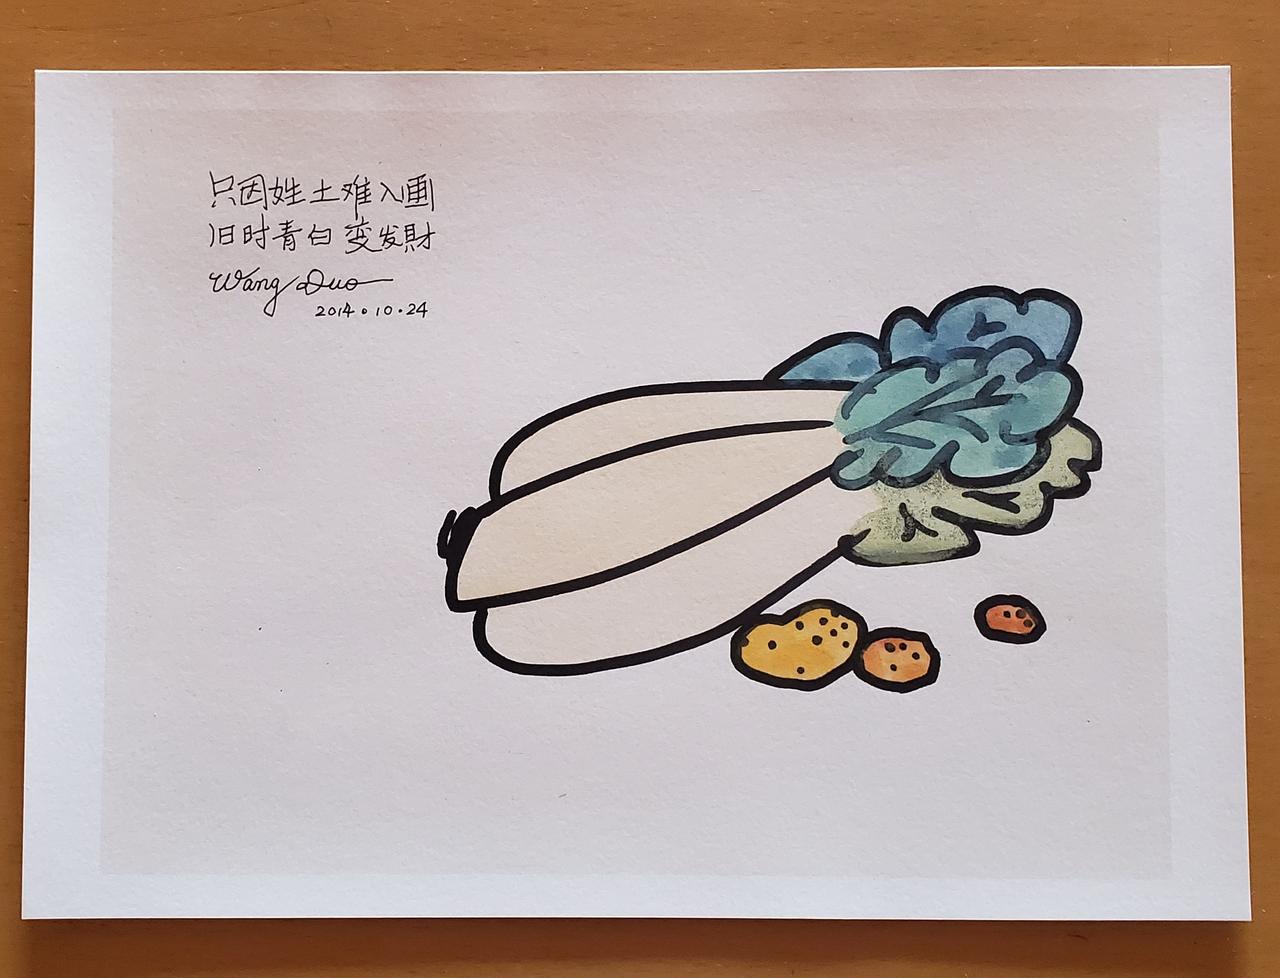 只因姓土难入画
旧时青白变发财
Wang Duo
2014.10.24